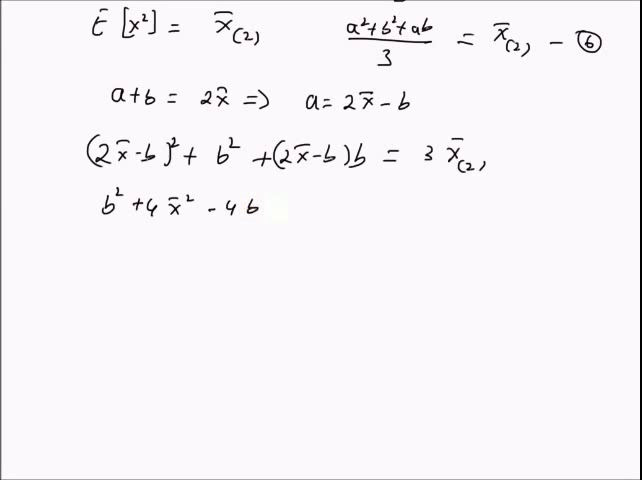 E [x²] = x̄₍₂₎ (a²+b²+ab)/3 = x̄₍₂₎ - ⑥
a+b = 2x̄ => a = 2x̄ - b
(2x̄-b)² + b² + (2x̄-b)b = 3 x̄₍₂₎
b² + 4x̄² - 4b